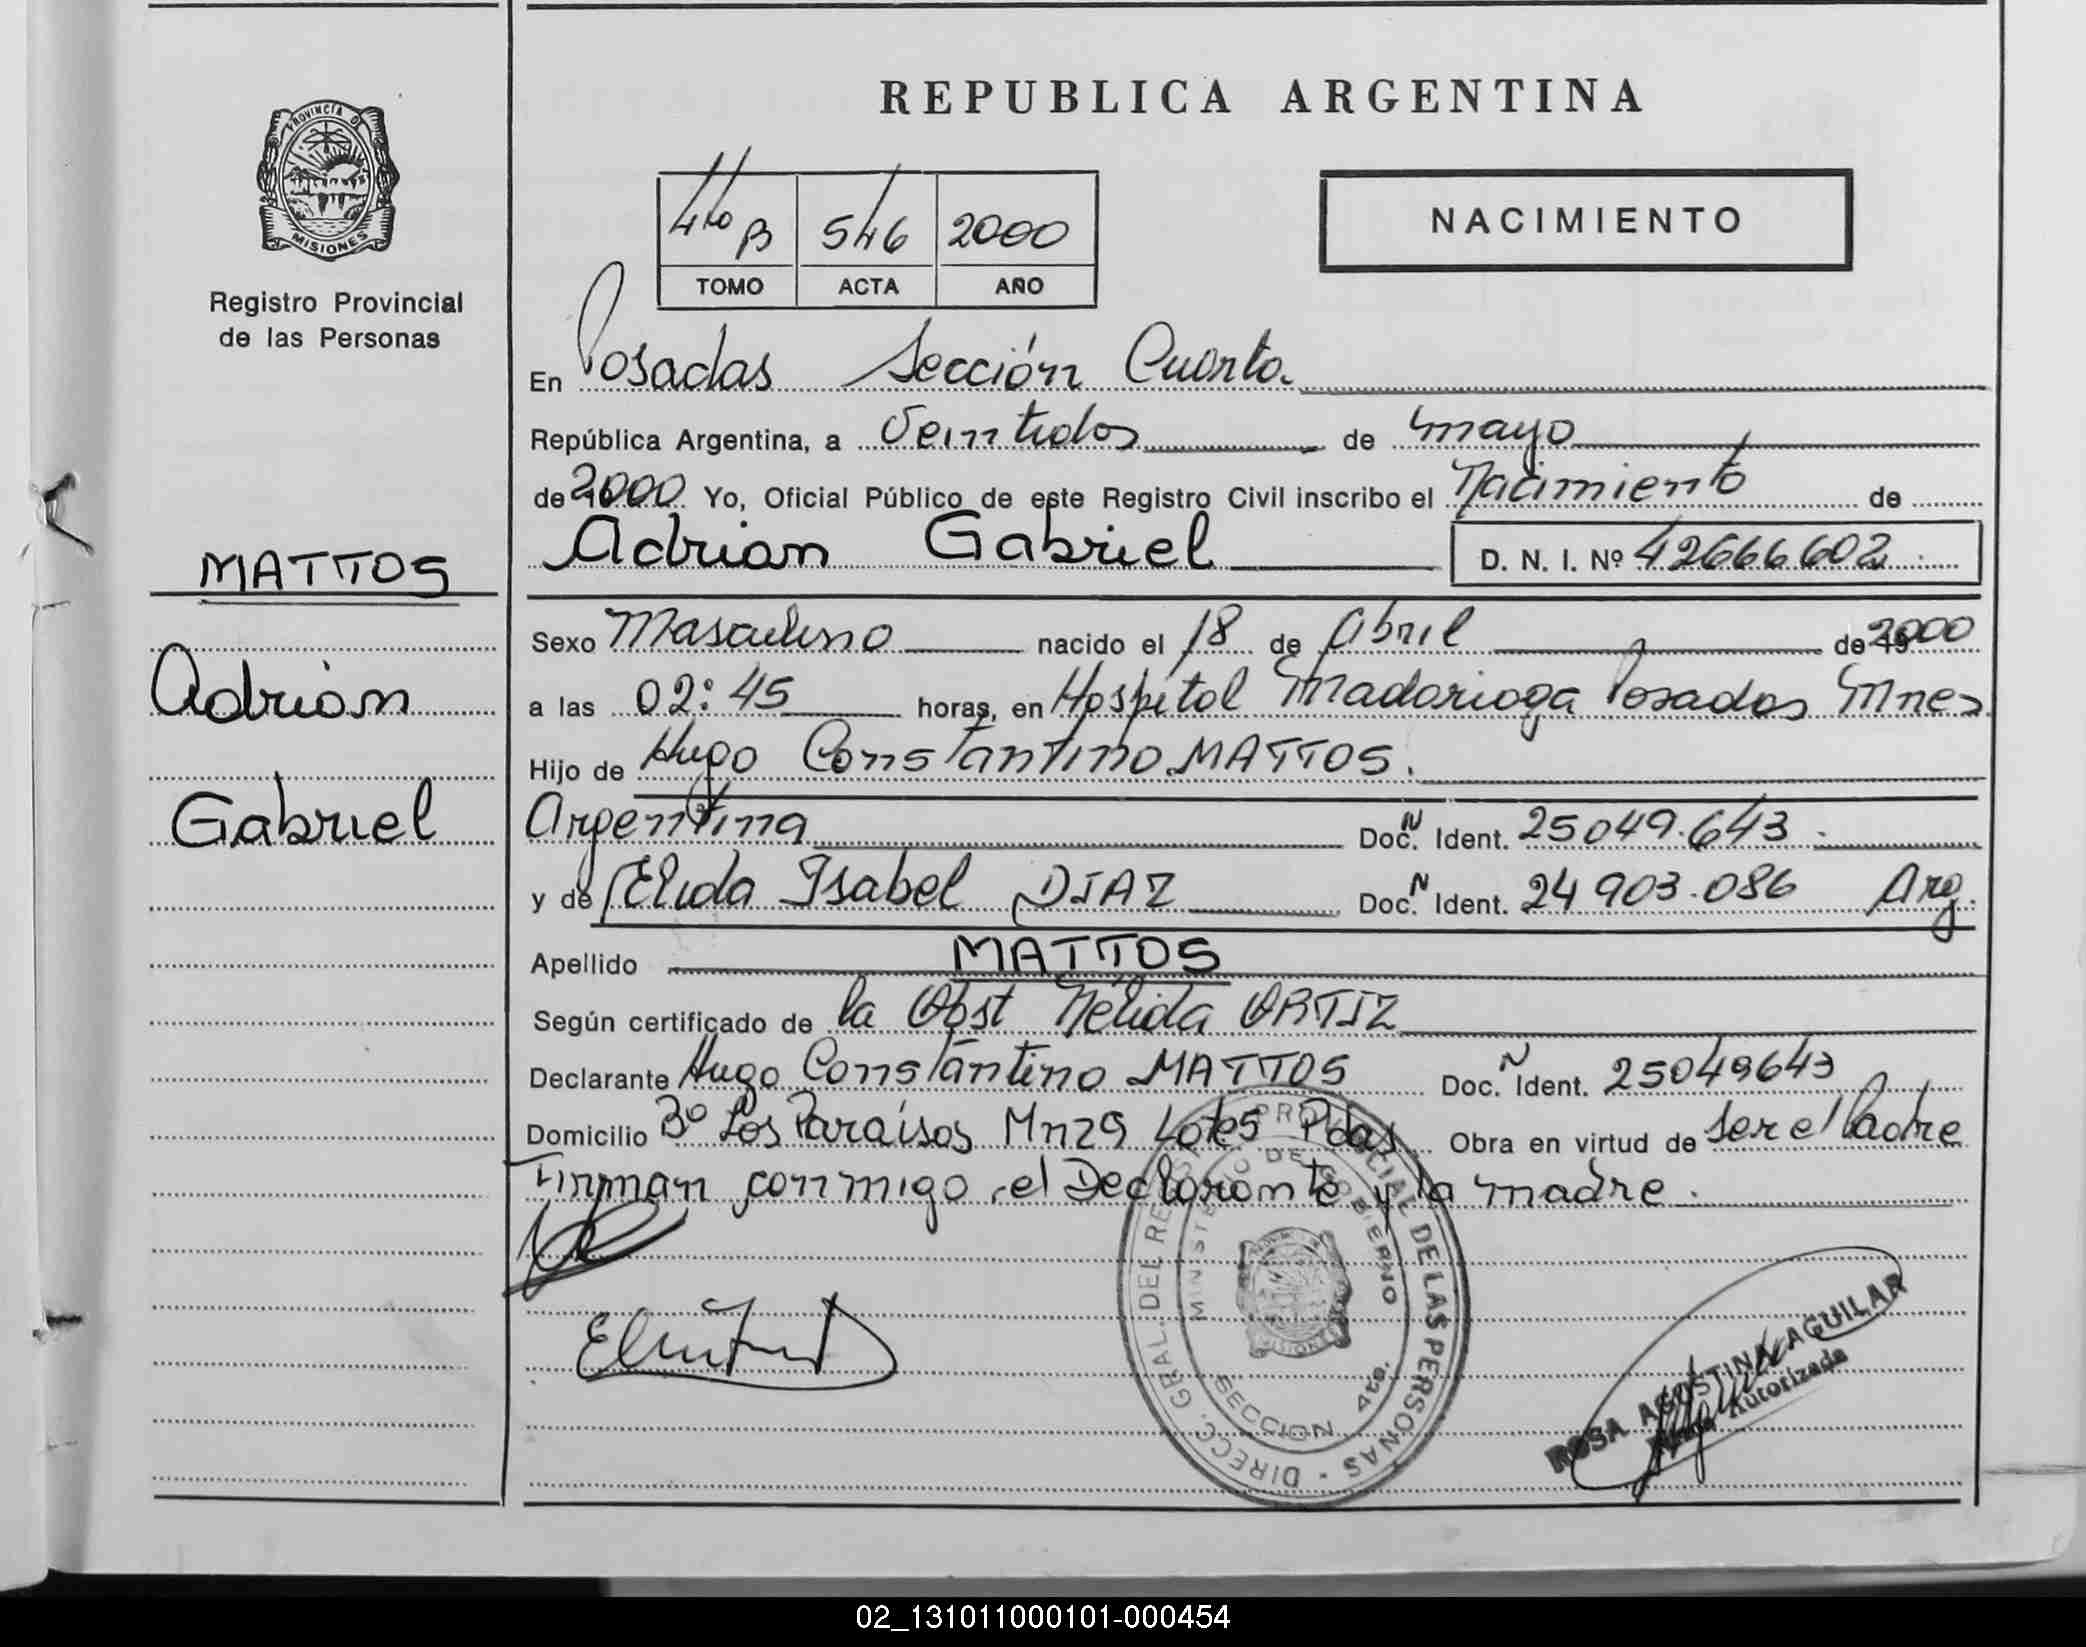 REPUBLICA ARGENTINA
PROVINCIA DE
MISIONES
Registro Provincial
de las Personas
4to B 546 2000
TOMO ACTA AÑO
NACIMIENTO
En Posadas Sección Cuarta.
República Argentina, a Veintidos de mayo
de 2000 Yo, Oficial Público de este Registro Civil inscribo el Nacimiento de
Adrian Gabriel D. N. I. Nº 42666602
MATTOS
Adrián
Gabriel
Sexo Masculino nacido el 18 de Abril de 19 2000
a las 02:45 horas, en Hospital Madariaga Posadas Mnes
Hijo de Hugo Constantino MATTOS.
Argentina Doc. N Ident. 25049.643.
y de Elida Isabel DIAZ Doc. N Ident. 24 903.086 Arg.
Apellido MATTOS
Según certificado de la Obst Nélida ORTIZ
Declarante Hugo Constantino MATTOS Doc. N Ident. 25049643
Domicilio Bº Los Paraísos Mnz9 Lote5 Pdas Obra en virtud de ser el Padre
Firman conmigo el Declarante y la madre.
DIRECC. GRAL. DEL REG. PROVINCIAL DE LAS PERSONAS
MINISTERIO DE GOBIERNO
SECCION 4ta.
ROSA AGOSTINA AGUILAR
Autorizada
02_131011000101-000454